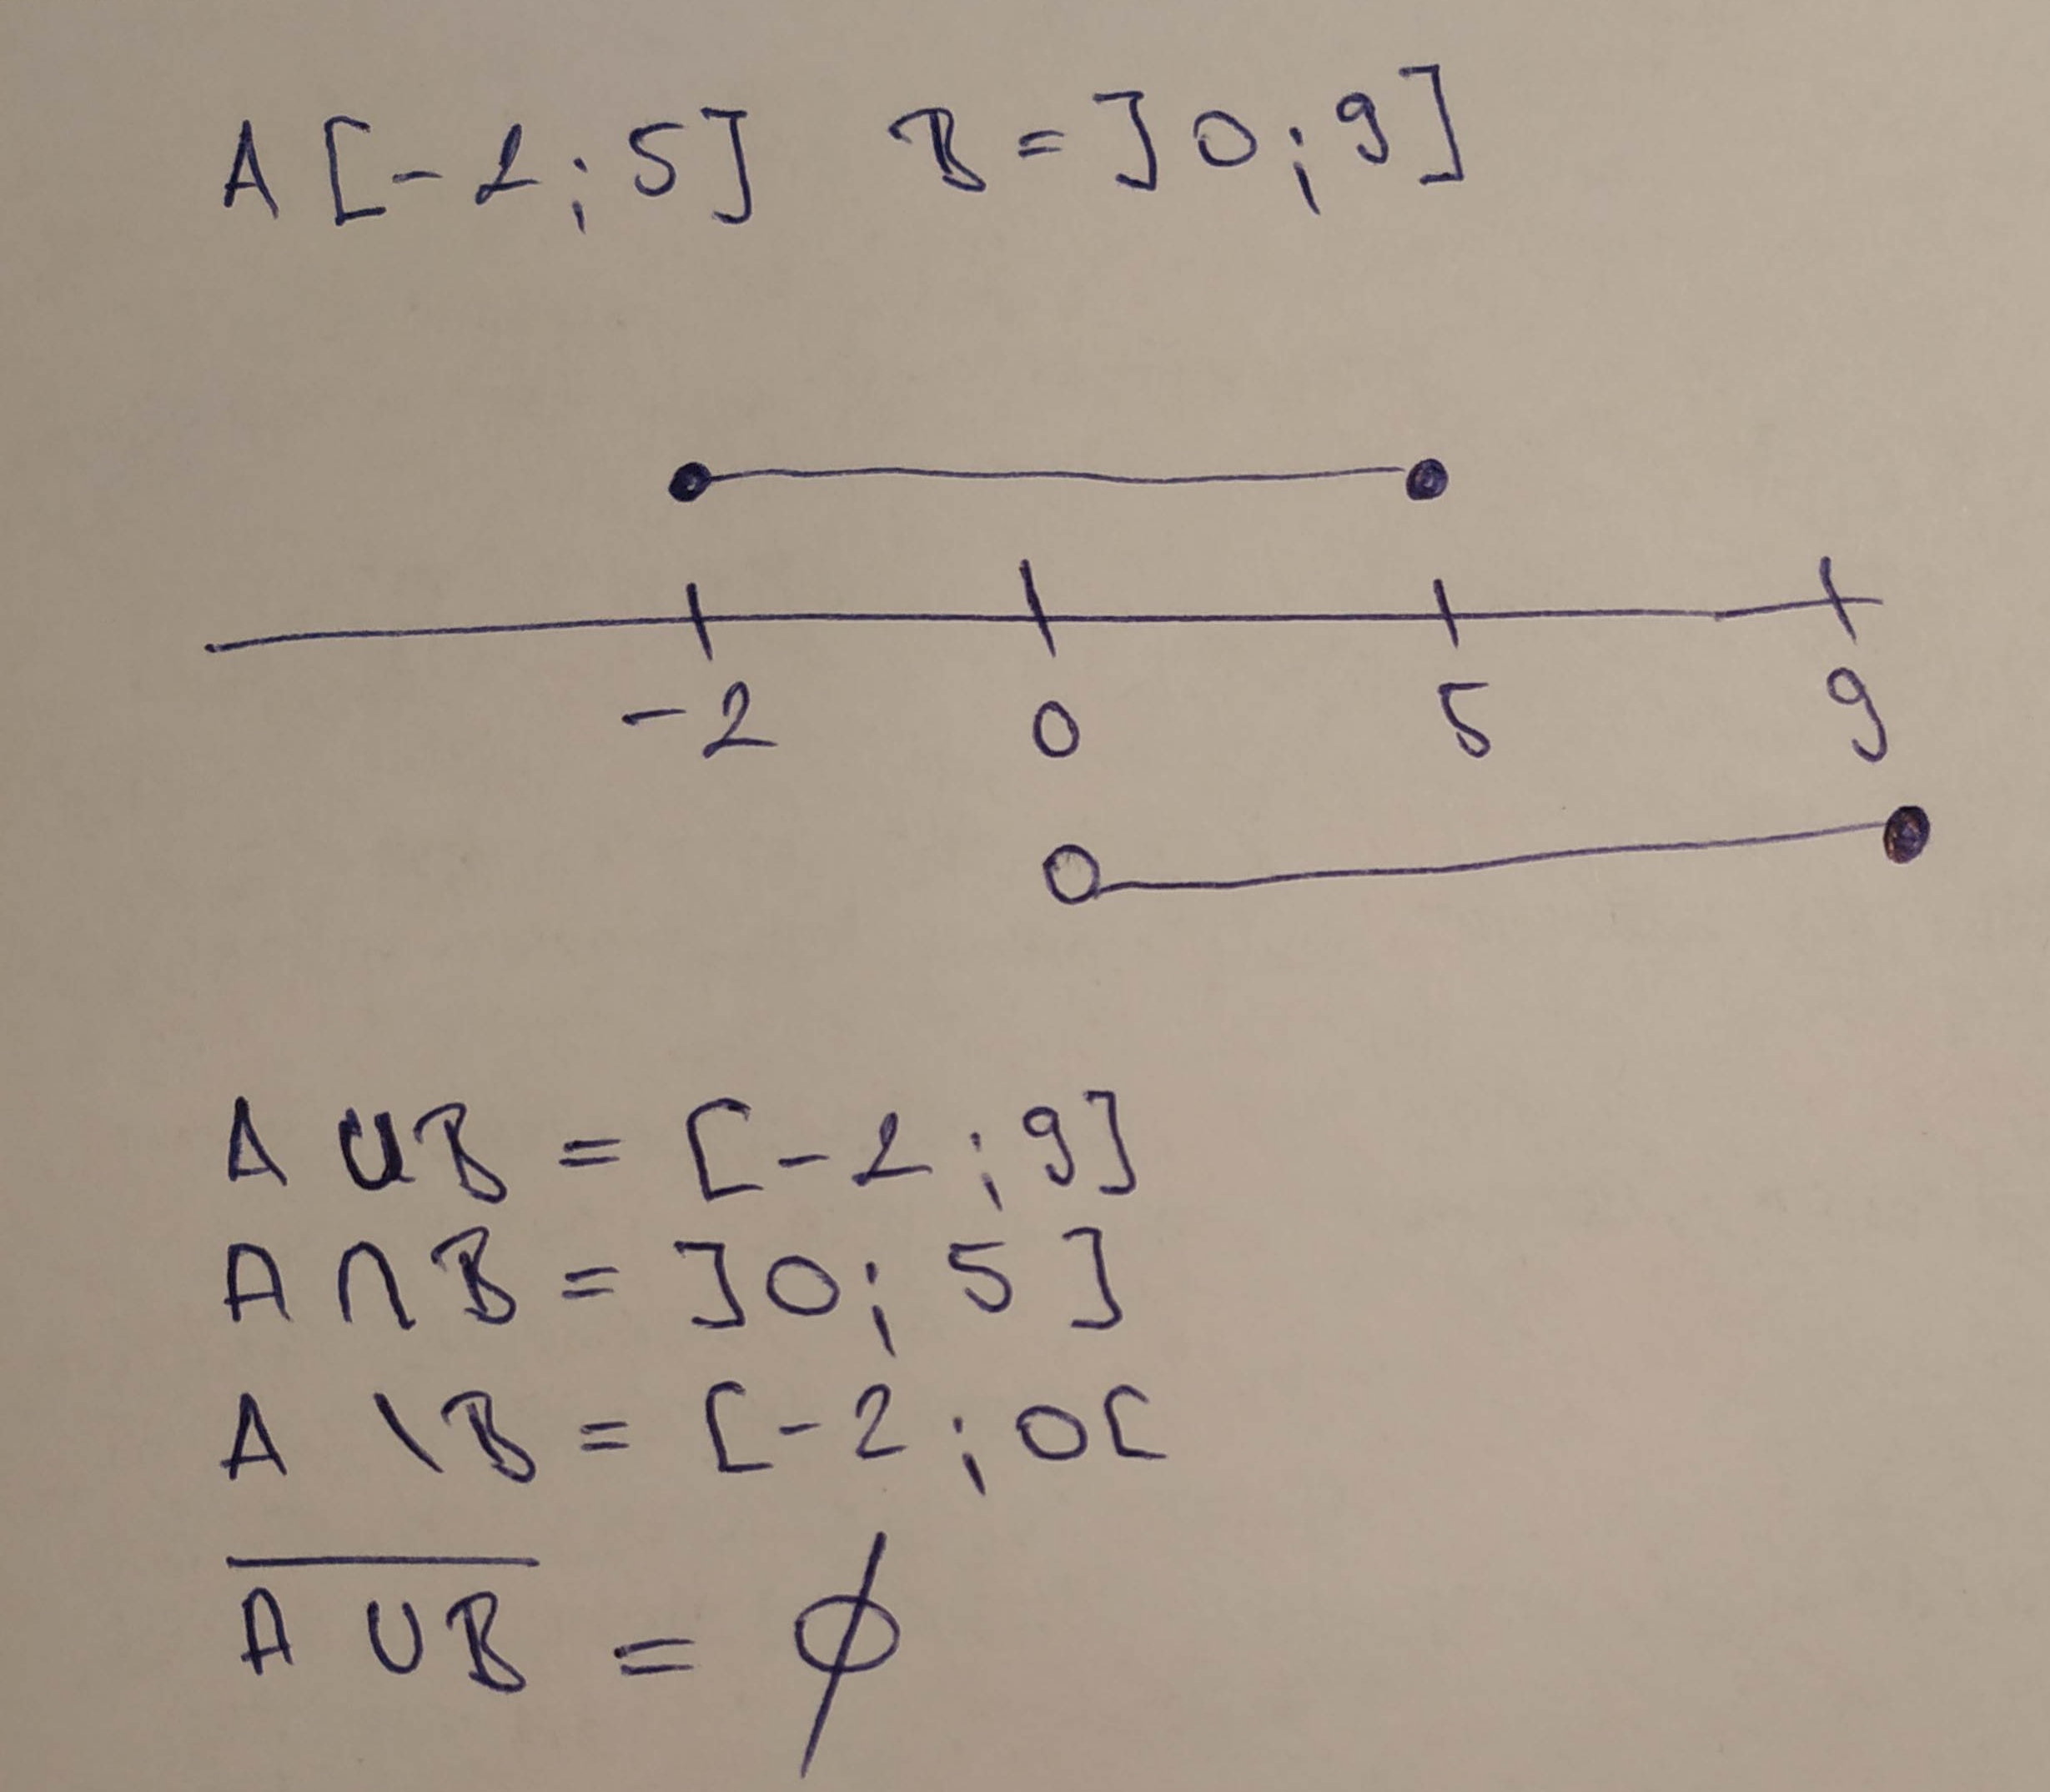 A [-2; 5] B = ]0; 9]
-2 0 5 9
A ∪ B = [-2; 9]
A ∩ B = ]0; 5]
A \ B = [-2; 0[
A̅ ̅∪̅ ̅B̅ = ∅